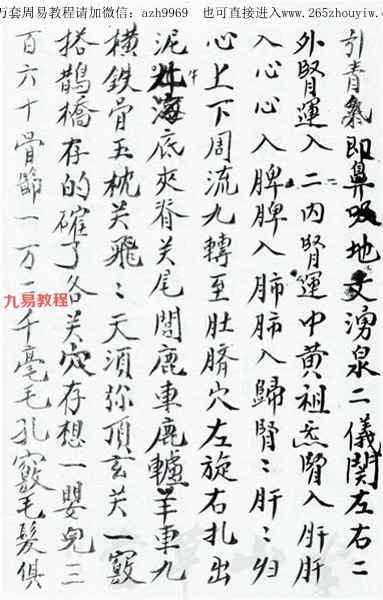 万套周易教程请加微信：azh9969　也可直接进入www.265zhouyiw.c
引青氣即鼻吸地戶湧泉二儀関左右二
外腎運入二内腎運中黄祖炁腎入肝肝
入心心入脾脾入肺肺入歸腎〻肝〻归
心上下周流九轉至肚臍穴左旋右扎出
泥丸海底夾脊关尾閭鹿車鹿轤羊車九
横鉄骨玉枕关飛〻天須弥頂玄关一竅
搭鵲橋存的確了各关穴存想一嬰兒三
百六十骨節一万二千毫毛孔竅毛髮俱
九易教程